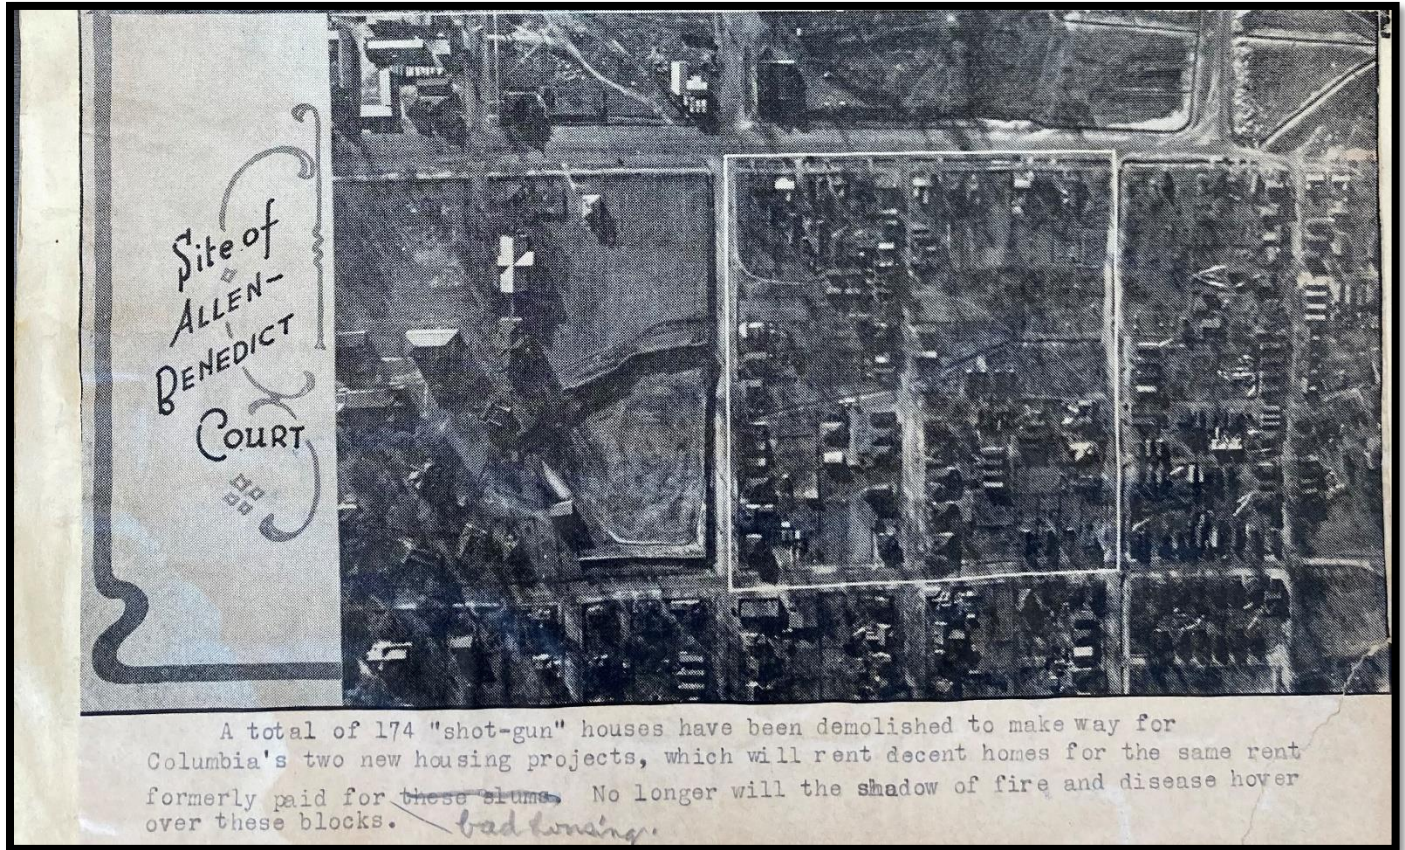 Site of
ALLEN-
BENEDICT
COURT
A total of 174 "shot-gun" houses have been demolished to make way for
Columbia's two new housing projects, which will rent decent homes for the same rent
formerly paid for these slums. No longer will the shadow of fire and disease hover
over these blocks. bad housing.